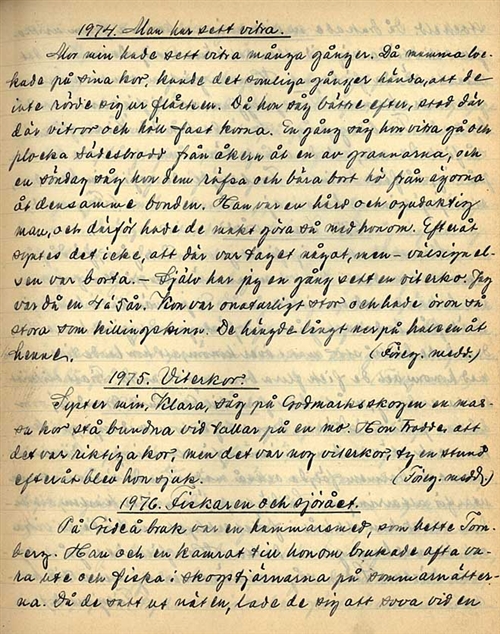 1974. Man har sett vitra.
Mor min hade sett vitra många gånger. Då mamma loc-
kade på sina kor, kunde det somliga gånger hända, att de
inte rörde sig ur fläcken. Då hon såg bättre efter, stod där
där vitror och höll fast korna. En gång såg hon vitra gå och
plocka sädesbrodd från åkern åt en av grannarna, och
en söndag såg hon dem räfsa och bära bort hö från ägorna
åt densamme bonden. Han var en hård och ogudaktig
man, och därför hade de makt göra så med honom. Efteråt
syntes det icke, att där var taget något, men - välsignel-
sen var borta. - Själv har jag en gång sett en viterko. Jag
var då en 4 à 5 år. Kon var onaturligt stor och hade öron så
stora som killingskinn. De hängde långt ner på halsen åt
henne. (Föreg. medd.)
1975. Viterkor.
Syster min, Klara, såg på Godmarksskogen en mas-
sa kor stå bundna vid tallar på en mo. Hon trodde, att
det var riktiga kor, men det var nog viterkor, ty en stund
efteråt blev hon sjuk. (Föreg. medd.)
1976. Fiskaren och sjörået.
På Gideå bruk var en hammarsmed, som hette Torn-
berg. Han och en kamrat till honom brukade ofta va-
ra ute och fiska i skogstjärnarna på sommarnätter-
na. Då de satt ut näten, lade de sig att sova vid en